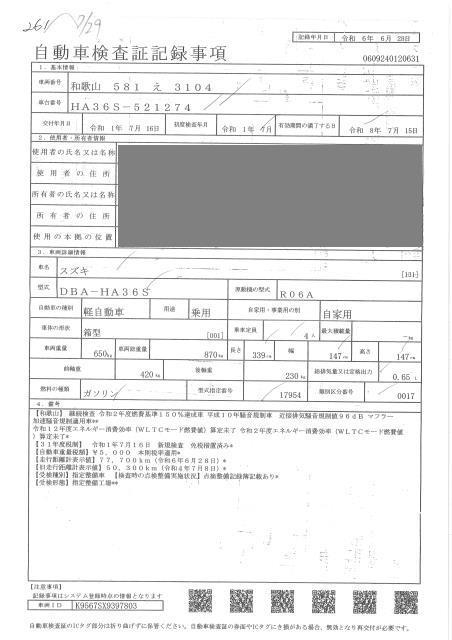 261 7/29
記録年月日 令和 6年 6月 28日
自動車検査証記録事項
0609240120631
1.基本情報
車両番号 和歌山 581 え 3104
車台番号 HA36S-521274
交付年月日 令和 1年 7月 16日 初度検査年月 令和 1年 7月 有効期間の満了する日 令和 8年 7月 15日
2.使用者・所有者情報
使用者の氏名又は名称
使用者の住所
所有者の氏名又は名称
所有者の住所
使用の本拠の位置
3.車両詳細情報
車名 スズキ [101]
型式 DBA-HA36S 原動機の型式 R06A
自動車の種別 軽自動車 用途 乗用 自家用・事業用の別 自家用
車体の形状 箱型 [001] 乗車定員 4人 最大積載量 -kg
車両重量 650kg 車両総重量 870kg 長さ 339cm 幅 147cm 高さ 147cm
前軸重 420kg 後軸重 230kg 総排気量又は定格出力 0.65L
燃料の種類 ガソリン 型式指定番号 17954 類別区分番号 0017
4.備考
【和歌山】 継続検査 令和2年度燃費基準150%達成車 平成10年騒音規制車 近接排気騒音規制値96dB マフラー
加速騒音規制適用車**
令和12年度エネルギー消費効率(WLTCモード燃費値)算定未了 令和2年度エネルギー消費効率(WLTCモード燃費値
)算定未了*
【31年度税制】 令和1年7月16日 新規検査 免税措置済み*
【自動車重量税額】¥5,000 本則税率適用*
【走行距離計表示値】77,700km(令和6年6月28日)*
【旧走行距離計表示値】50,300km(令和4年7月8日)*
【受検種別】指定整備車 【検査時の点検整備実施状況】点検整備記録簿記載あり*
【受検形態】指定整備工場**
【注意事項】
記録事項はシステム登録時点の情報となります
車両ID K9567SX9397803
自動車検査証のICタグ部分は折り曲げずに保管ください。自動車検査証の券面やICタグに き損がある場合、無効となり再交付が必要です。